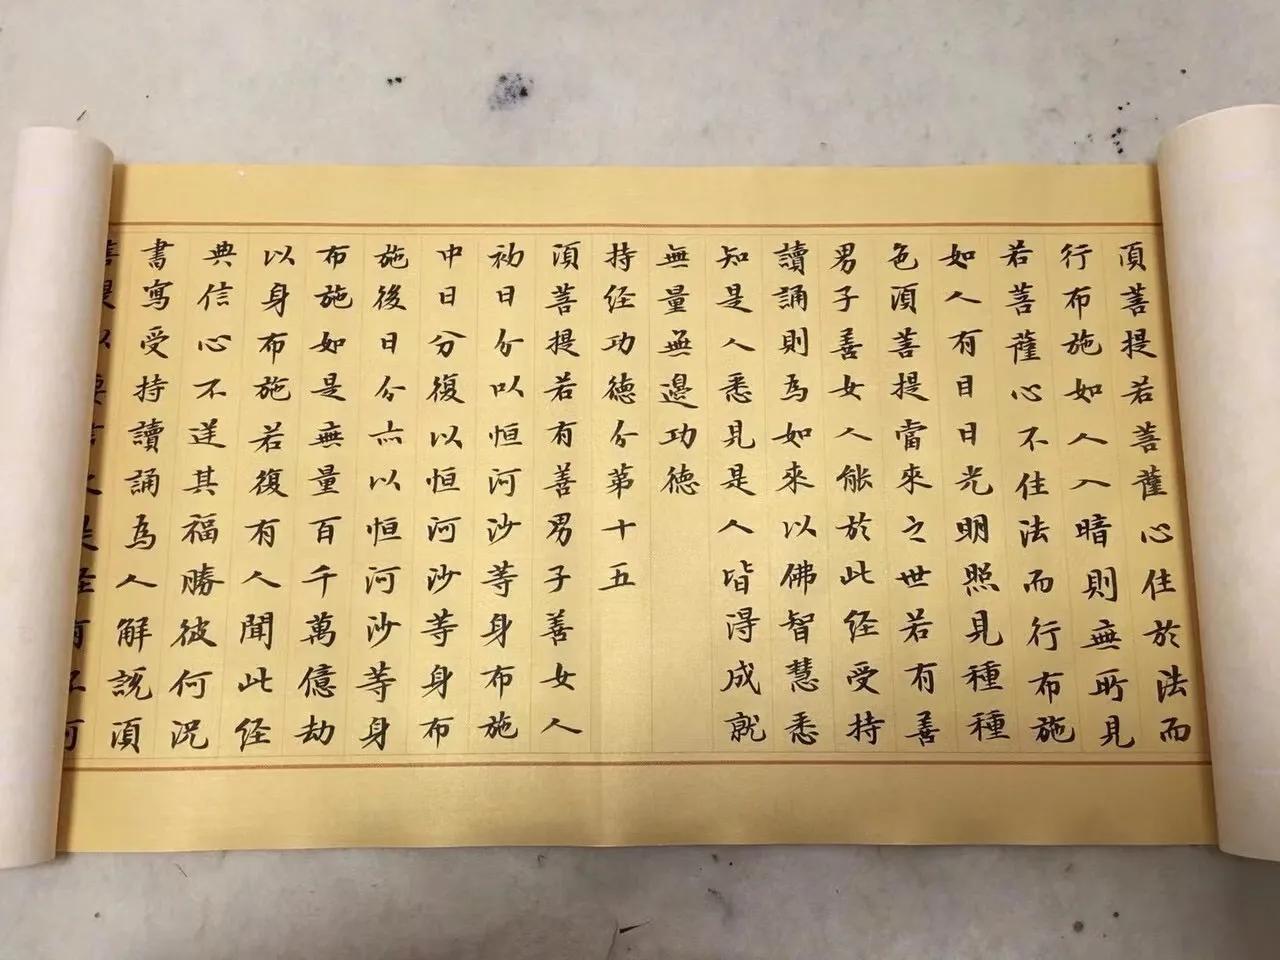 須菩提若菩薩心住於法而
行布施如人入暗則無所見
若菩薩心不住法而行布施
如人有目日光明照見種種
色須菩提當來之世若有善
男子善女人能於此経受持
讀誦則為如來以佛智慧悉
知是人悉見是人皆得成就
無量無邊功徳
持経功德分第十五
須菩提若有善男子善女人
初日分以恒河沙等身布施
中日分復以恒河沙等身布
施後日分亦以恒河沙等身
布施如是無量百千萬億劫
以身布施若復有人聞此経
典信心不逆其福勝彼何況
書寫受持讀誦為人解説須